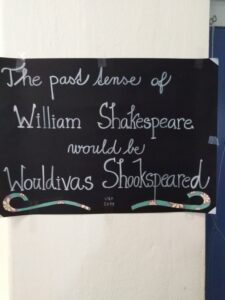 The past tense of
William Shakespeare
would be
Wouldivas Shookspeared